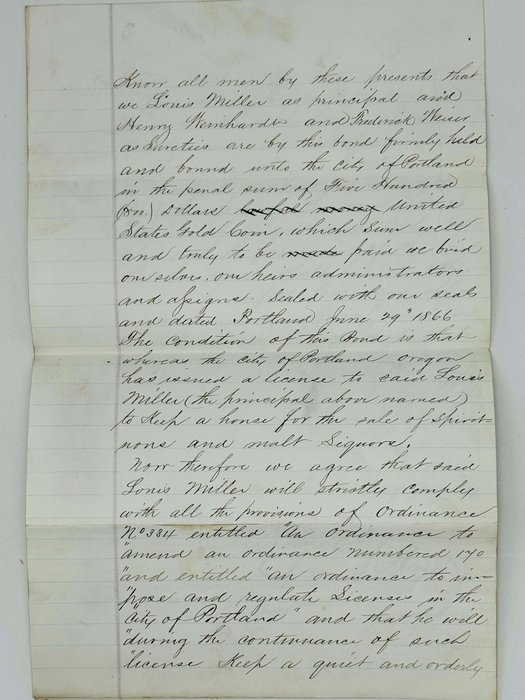 Know all men by these presents that
we Louis Miller as principal and
Henry Weinhardt and Frederick Weiser
as Sureties are by this bond firmly held
and bound unto the city of Portland
in the penal sum of Five Hundred
(500.) Dollars lawful money United
States Gold Coin, which sum well
and truly to be made paid we bind
ourselves, our heirs administrators
and assigns. Sealed with our seals
and dated, Portland June 29" 1866
The condition of this Bond is that
whereas the city of Portland Oregon
has issued a license to said Louis
Miller (the principal above named)
to Keep a house for the sale of Spirit-
uous and malt Liquors.
Now therefore we agree that said
Louis Miller will strictly comply
with all the provisions of Ordinance
No 334 entitled "An Ordinance to
"amend an ordinance numbered 170
"and entitled "an ordinance to im-
"pose and regulate Licenses in the
"City of Portland" and that he will
"during the continuance of such
"license Keep a quiet and orderly